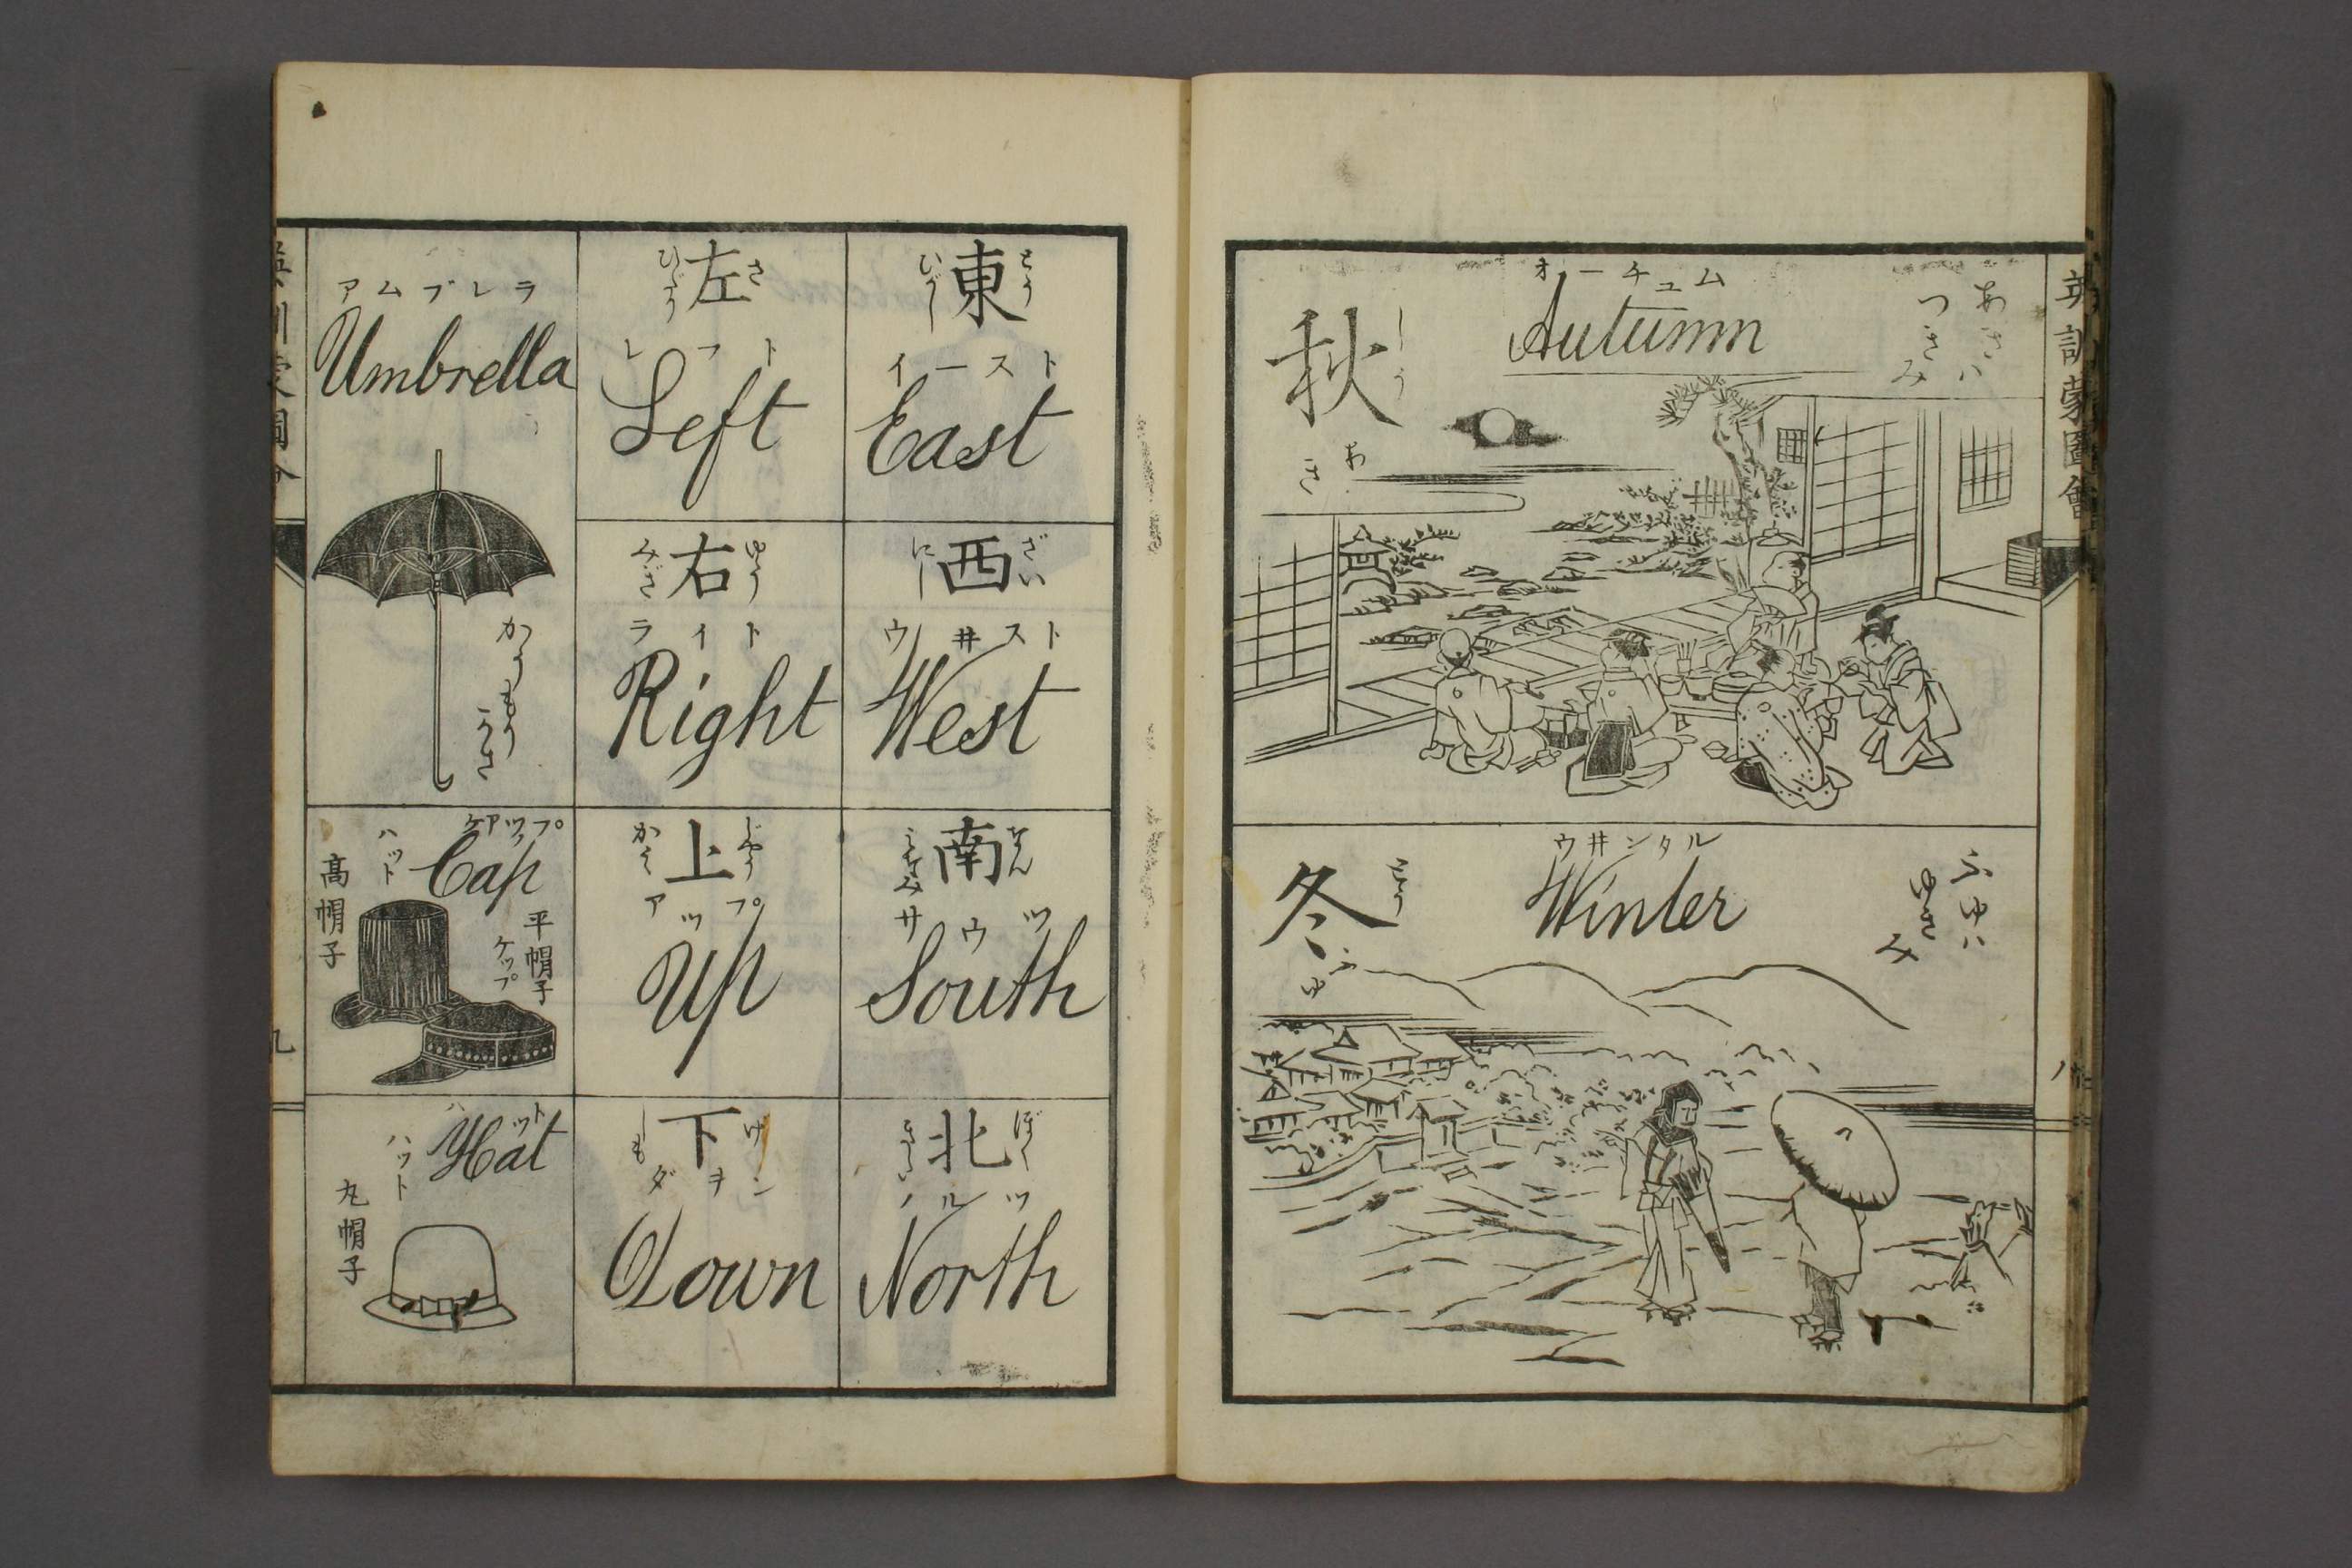 英訓蒙圖會
八
オーチュム
Autumn
秋
しう
あき
あきは
つきみ
ウ井ンタル
Winter
冬
とう
ふゆ
ふゆは
ゆきみ
東
とう
ひがし
イースト
East
西
ざい
にし
ウ井スト
West
南
なん
みなみ
サウツ
South
北
ほく
きた
ノルツ
North
左
さ
ひだり
レフト
Left
右
ゆう
みぎ
ライト
Right
上
じやう
かみ
アップ
Up
下
げ
しも
ダヲン
Down
アムブレラ
Umbrella
かうもり
がさ
ケアップ
Cap
ハット
高帽子
平帽子
ケップ
ハット
Hat
ハット
丸帽子
九